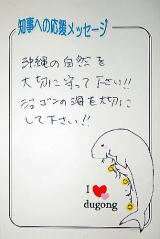 知事への応援メッセージ
沖縄の自然を
大切に守って下さい!!
ジュゴンの海を大切に
して下さい!!
I
dugong